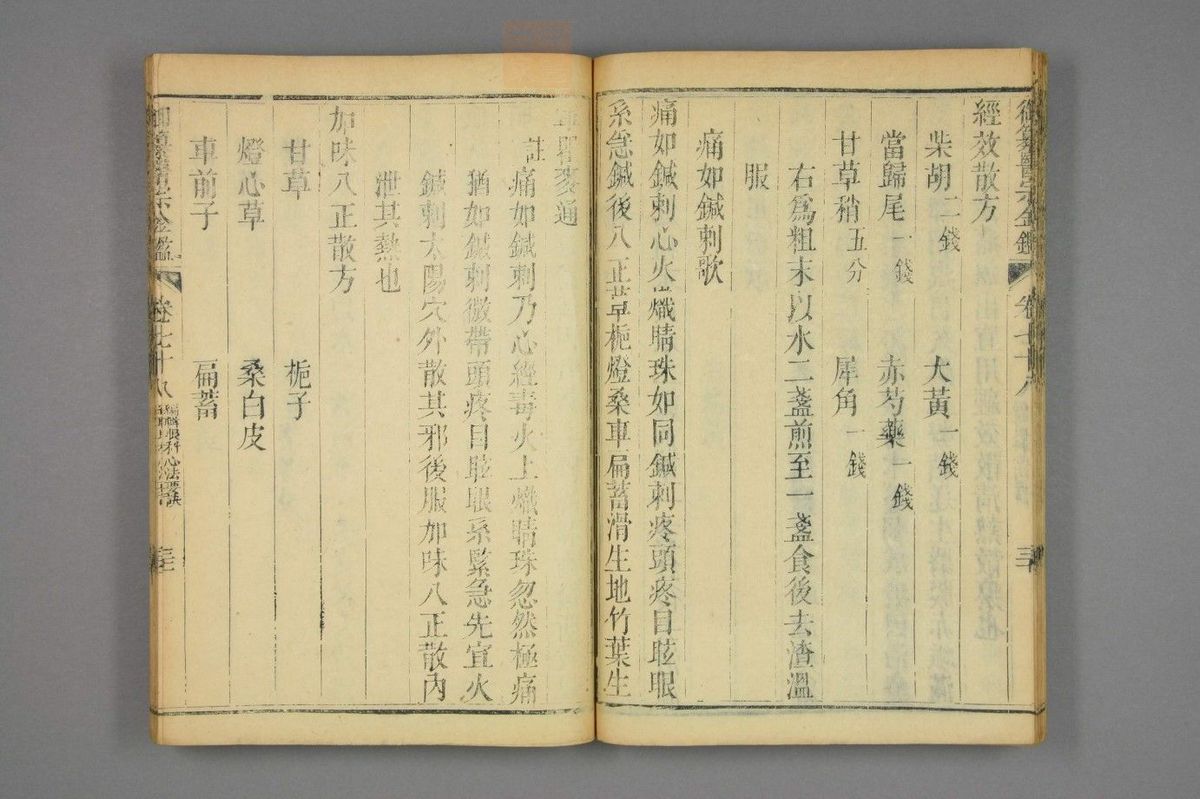 御纂醫宗金鑑 卷七十八 三十
經效散方
柴胡二錢 大黃一錢
當歸尾一錢 赤芍藥一錢
甘草稍五分 犀角一錢
右為粗末以水二盞煎至一盞食後去渣溫
服
痛如鍼刺歌
痛如鍼刺心火熾睛珠如同鍼刺疼頭疼目眩眼
系急鍼後八正草梔燈桑車扁蓄滑生地竹葉生
軍瞿麥通
註痛如鍼刺乃心經毒火上熾睛珠忽然極痛
猶如鍼刺微帶頭疼目眩眼系緊急先宜火
鍼刺太陽穴外散其邪後服加味八正散內
泄其熱也
加味八正散方
甘草 梔子
燈心草 桑白皮
車前子 扁蓄
御纂醫宗金鑑 卷七十八 編輯眼科心法要訣